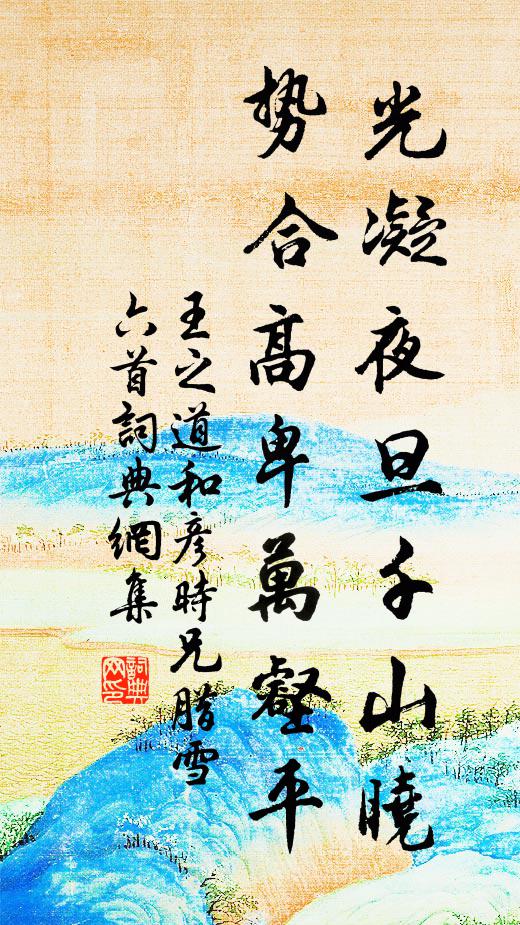 光凝夜旦千山曉
势合高卑萬壑平
王之道和彦時兄腊雪
六首詞典網集
詞典
网印